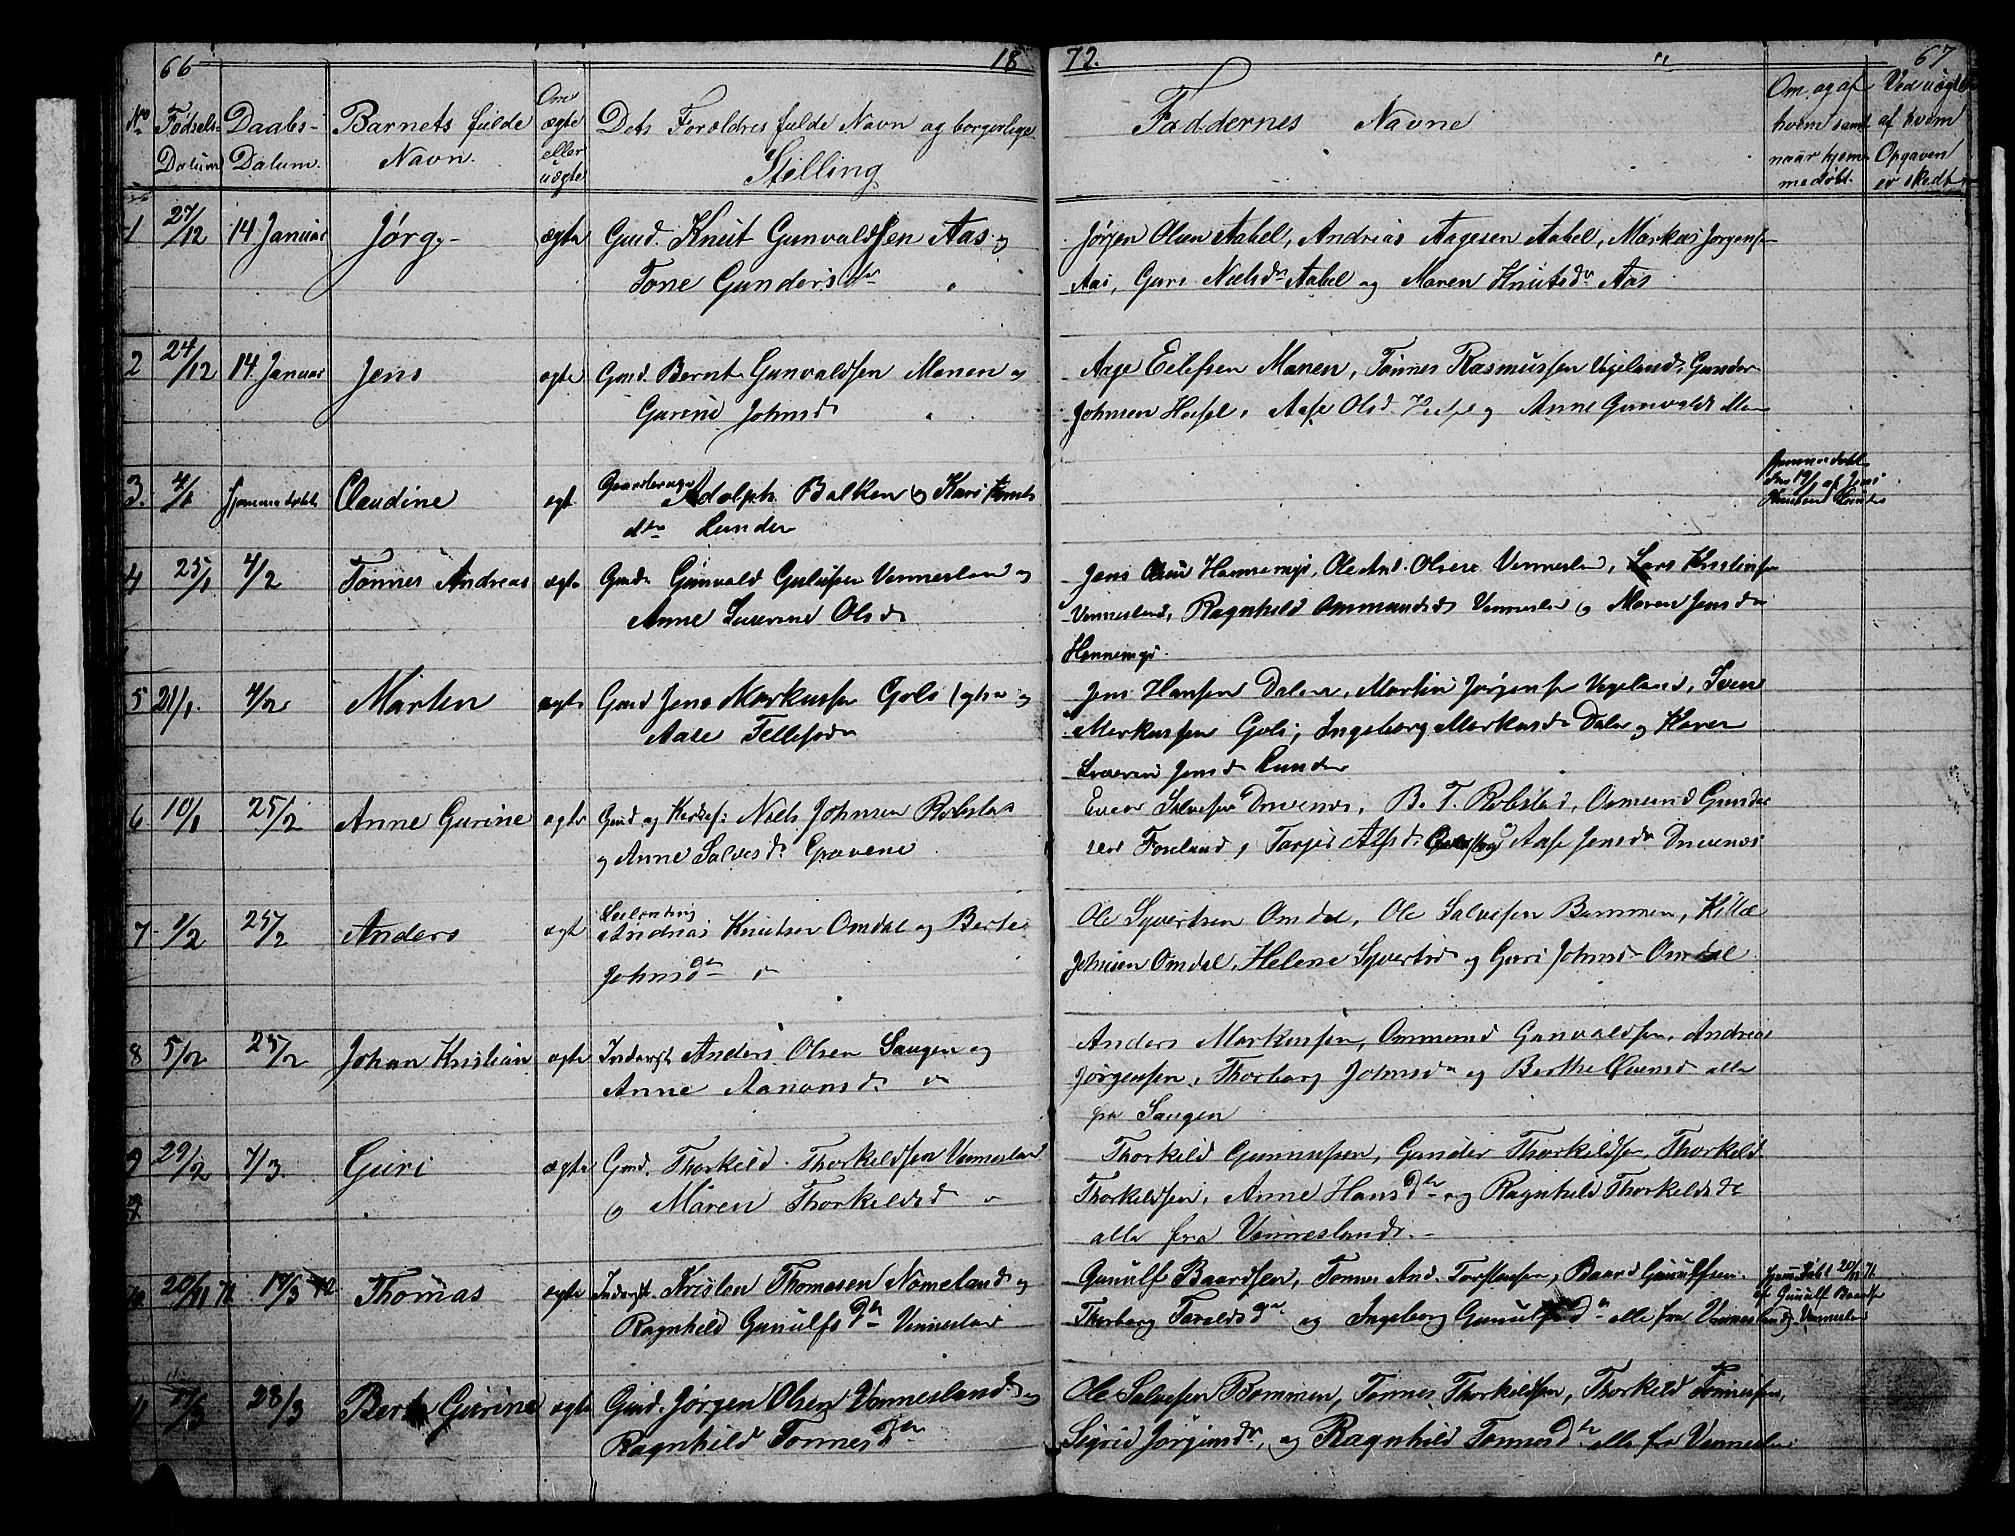 66 18 72. " 67
No Fødsels- Datum Daabs- Datum. Barnets fulde Navn. Om ægte eller uægte Dets Forældres fulde Navn og borgerlige Stilling Faddernes Navne Om, og af hvem samt naar hjemmedøbt. Ved uægte af hvem Opgaven er skedt
1 27/12 14 Januar Jørg- ægte Gmd. Knut Gunvaldsen Aas og
Tone Gundersdtr "
Jørgen Olsen Aabel, Andreas Aagesen Aabel, Markus Jørgensen
Aas, Guri Nielsdr Aabel og Maren Knutsdr Aas
2 24/12 14 Januar Jens ægte Gmd. Bernt Gunvaldsen Monen og
Gurine Johnsd "
Aage Eilefsen Monen, Tønnes Rasmussen Vigeland, Gunder
Johnsen, Aase Olsd. og Anne Gunvaldsd
3. 4/1 hjemmedøbt Claudine ægt Adolph Balken og Kari
dtr Lunden
Hjemmedøbt
19/1 af Jens
Knutsen
4 25/1 4/2 Tønnes Andreas ægte Gmd. Gunvald Vennesland og
Anne Severine Olsd
Jens Olsen Hannemyr, Ole And. Olsen Vennesland, Lars
Vennesland, Ragnhild Ommundsd Vennesland og Maren Jensd
Hannemyr.
5 21/1. 4/2 Marten ægte Gmd Jens Markussen Goli og
Aase Tellefsd
Jens Hansen Dalen, Martin Jørgensen Vigeland, Sven
Markussen Goli, Ingeborg Markusd Dalen og Karen
Severin Jensd Lunden
6 10/1 25/2 Anne Gurine ægte Gmd og Niels Johnsen Robstad
og Anne Salvesd Gravene
Salvesen Drivenes, B. T. Robstad, Osmund Gunder
sen Foreland, Tarjer Alfsd og Aase Jensd Drivenes
7 1/2 25/2 Anders ægt Andreas Knutsen Omdal og Berte
Johnsdtr "
Ole Syvertsen Omdal, Ole Salvesen Bommen, Kittel
Johnsen Omdal, Helene Syvertsd og Guri Johnsd Omdal
8 5/2 25/2 Johan Kristian ægte Inderst Anders Olsen Saugen og
Anne Aanonsd "
Anders Markussen, Ommund Gunvaldsen, Andreas
Jørgensen, Thorborg Johnsd og Berthe Evensd alle
fra Saugen
9 29/2 7/3. Guri ægte Gmd. Thorkild Thorkildsen Vennesland
og Maren Thorkildsd "
Thorkild Gunnufsen, Gunder Thorkildsen, Thorkild
Thorkildsen, Anne Hansdtr og Ragnhild Thorkildsd
alle fra Vennesland. -
10 20/11 71 17/3 72 Thomas ægte Inderst. Kristen Thomasen Nomeland og
Ragnhild Gunulfsdtr Vennesland
Gunulf Baardsen, Tønnes And. Torstensen, Baard Gunulfsen
Thorborg Taraldsdtr og Ingeborg Gunulfsdtr alle fra Vennesland
Hjemdøbt 20/11 71
af Gunulf Baardsen
Vennesland
11 17/3 28/3 Berte Gurine ægte Gmd. Jørgen Olsen Vennesland og
Ragnhild Tønnesdtr
Ole Salvesen Bommen, Tønnes Thorkildsen, Thorkild Tønnessen,
Sigrid Jørgensdr, og Ragnhild Tønnesdtr alle fra Vennesland